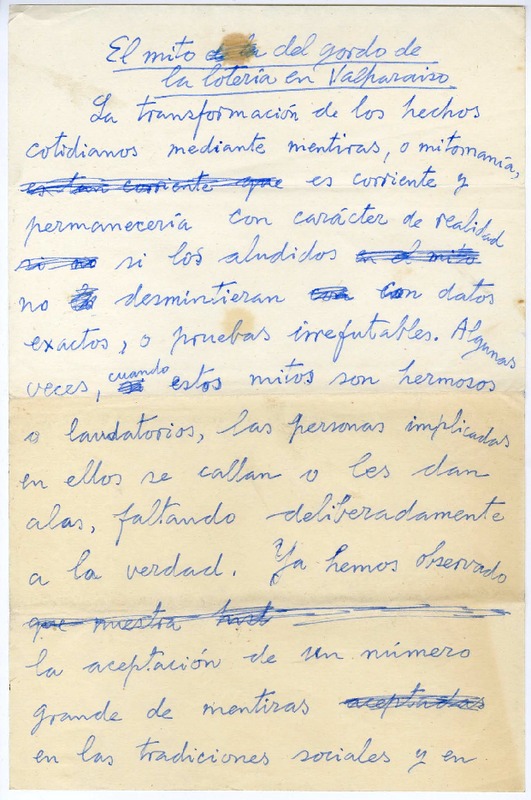 El mito de la del gordo de
la lotería en Valparaíso
La transformación de los hechos
cotidianos mediante mentiras, o mitomanía,
es tan corriente que es corriente y
permanecería con carácter de realidad
si no si los aludidos en el mito
no desmintieran con con datos
exactos, o pruebas irrefutables. Algunas
veces, cuando estos mitos son hermosos
o laudatorios, las personas implicadas
en ellos se callan o les dan
alas, faltando deliberadamente
a la verdad. Ya hemos observado
que nuestra hist
la aceptación de un número
grande de mentiras aceptadas
en las tradiciones sociales y en